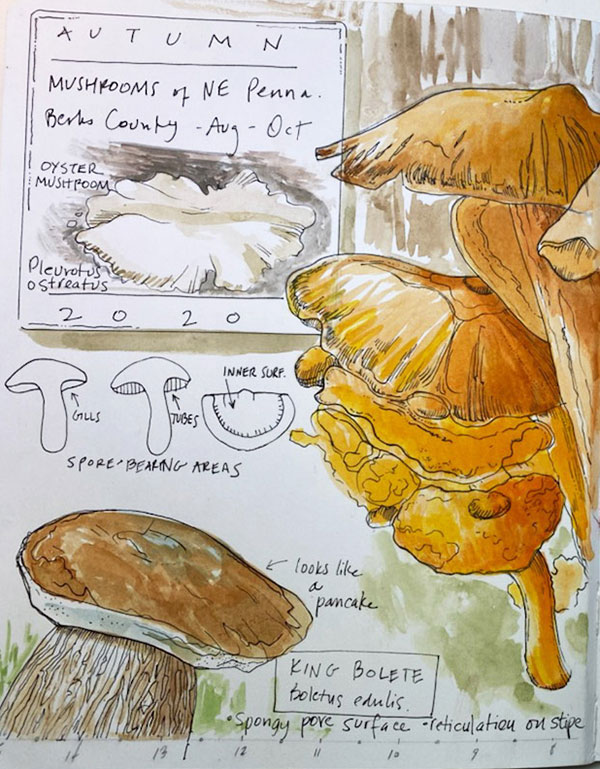 AUTUMN
MUSHROOMS of NE Penna.
Berks County - Aug - Oct
OYSTER
MUSHROOM
Pleurotus
ostreatus
2020
GILLS
TUBES
INNER SURF.
SPORE-BEARING AREAS
← looks like
a
pancake
KING BOLETE
Boletus edulis.
•Spongy pore surface •reticulation on stipe
14 13 12 11 10 9 8